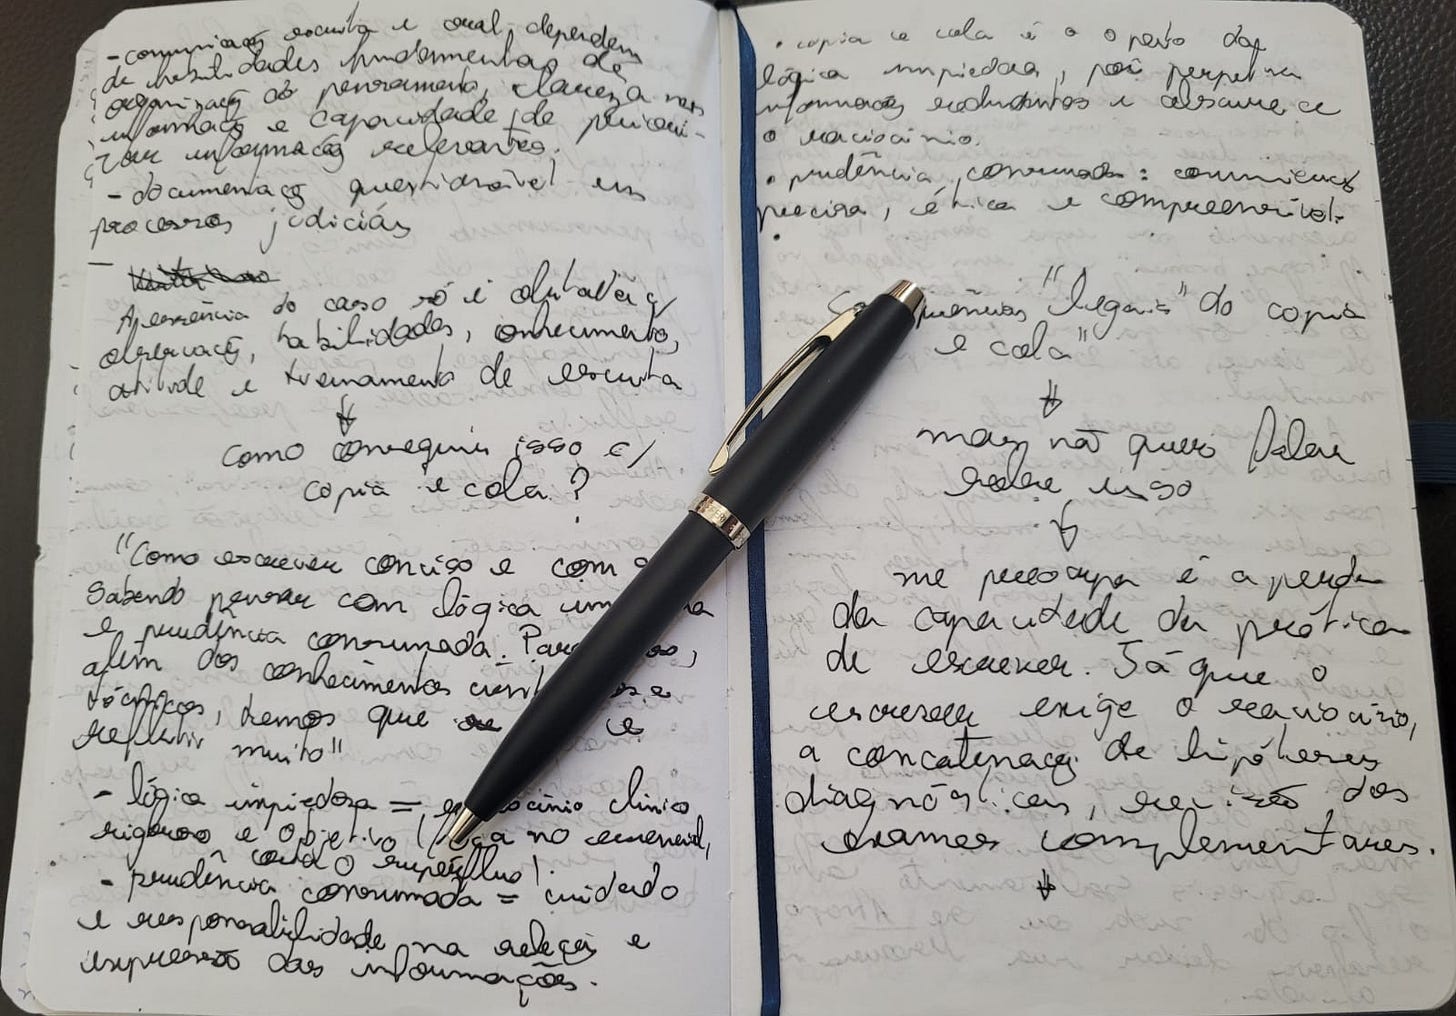 - comunicação escrita e oral dependem
de habilidades fundamentais de
organização do pensamento, clareza nas
informações e capacidade de priori-
zar informações relevantes.
- documentação questionável em
processos judiciais
A essência do caso só é obtida c/
observação, habilidades, conhecimento,
atitude e treinamento de escrita
Como conseguir isso c/
copia e cola?
"Como escrever conciso e com
Sabendo pensar com lógica
e prudência consumada. Para
além dos conhecimentos
temos que e
refletir muito"
- lógica impiedosa = clínico
rigoroso e objetivo no essencial,
corta o supérfluo!
- prudência consumada = cuidado
e responsabilidade na seleção e
expressão das informações.
• copia e cola é o oposto da
lógica impiedosa, pois perpetua
informações redundantes e obscurece
o raciocínio.
• prudência consumada: comunicação
precisa, ética e compreensível.
"legais" do copia
e cola"
mas não quero falar
sobre isso
me preocupa é a perda
da capacidade da prática
de escrever. Já que o
escrever exige o raciocínio,
a concatenação de hipóteses
diagnósticas, revisão dos
exames complementares.